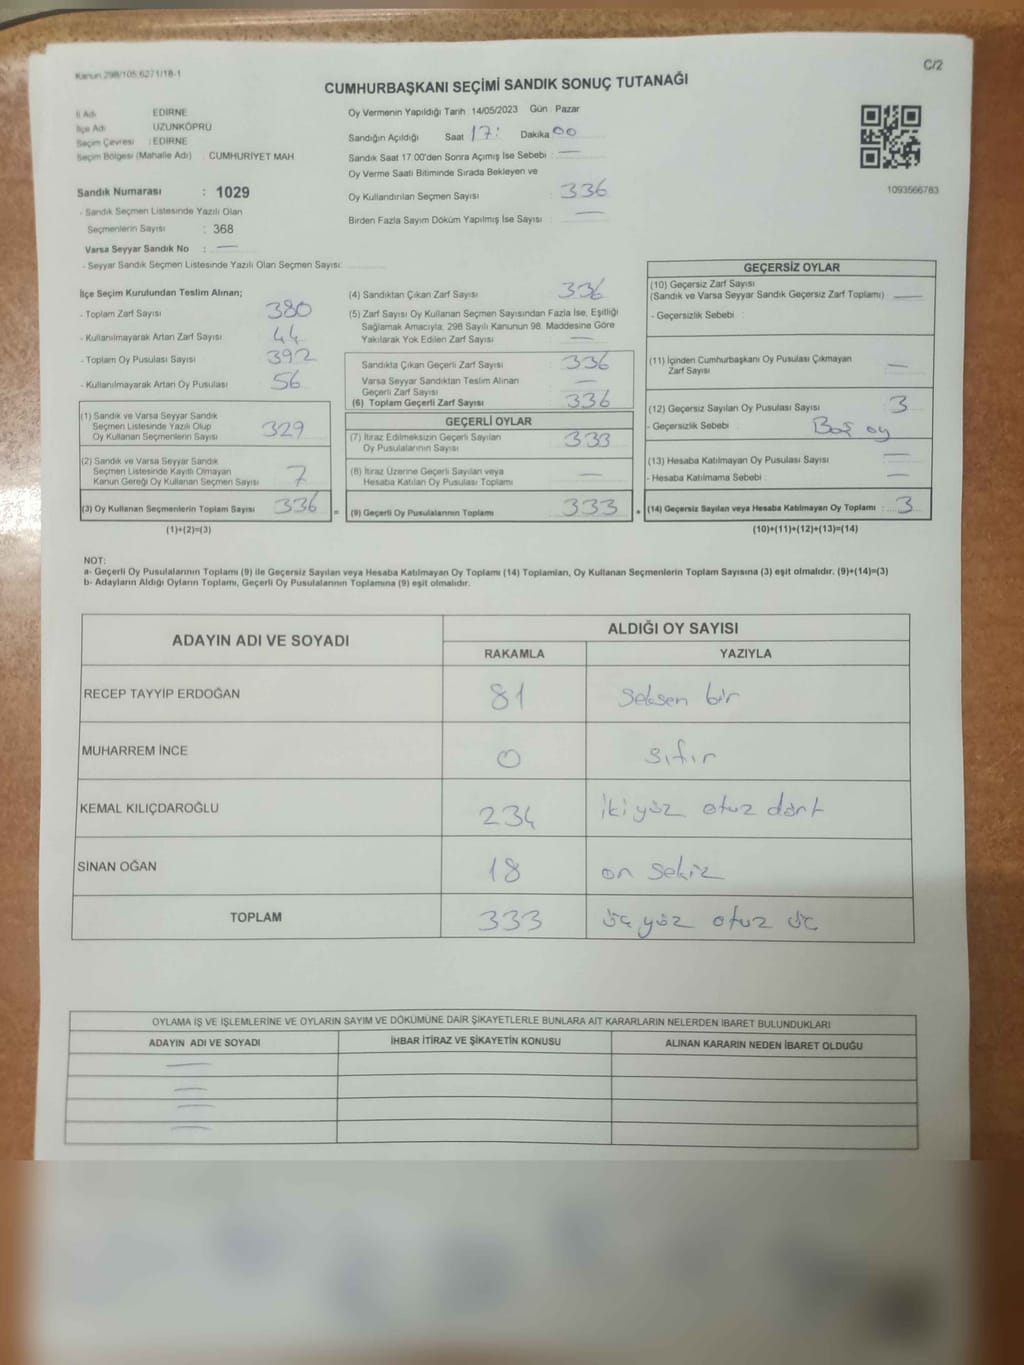 Kanun 298/105;6271/18-1
C/2
CUMHURBAŞKANI SEÇİMİ SANDIK SONUÇ TUTANAĞI
İl Adı EDİRNE
İlçe Adı UZUNKÖPRÜ
Seçim Çevresi : EDİRNE
Seçim Bölgesi (Mahalle Adı) CUMHURİYET MAH
Sandık Numarası : 1029
- Sandık Seçmen Listesinde Yazılı Olan
Seçmenlerin Sayısı : 368
Varsa Seyyar Sandık No : —
- Seyyar Sandık Seçmen Listesinde Yazılı Olan Seçmen Sayısı:
Oy Vermenin Yapıldığı Tarih : 14/05/2023 Gün : Pazar
Sandığın Açıldığı Saat 17: Dakika 00
Sandık Saat 17.00'den Sonra Açımış İse Sebebi : —
Oy Verme Saati Bitiminde Sırada Bekleyen ve
Oy Kullandırılan Seçmen Sayısı : 336
Birden Fazla Sayım Döküm Yapılmış İse Sayısı : —
1093566783
İlçe Seçim Kurulundan Teslim Alınan;
- Toplam Zarf Sayısı : 380
- Kullanılmayarak Artan Zarf Sayısı : 44
- Toplam Oy Pusulası Sayısı : 392
- Kullanılmayarak Artan Oy Pusulası : 56
(1) Sandık ve Varsa Seyyar Sandık
Seçmen Listesinde Yazılı Olup
Oy Kullanan Seçmenlerin Sayısı : 329
(2) Sandık ve Varsa Seyyar Sandık
Seçmen Listesinde Kayıtlı Olmayan
Kanun Gereği Oy Kullanan Seçmen Sayısı : 7
(3) Oy Kullanan Seçmenlerin Toplam Sayısı : 336
(1)+(2)=(3)
=
(4) Sandıktan Çıkan Zarf Sayısı : 336
(5) Zarf Sayısı Oy Kullanan Seçmen Sayısından Fazla İse, Eşitliği
Sağlamak Amacıyla, 298 Sayılı Kanunun 98. Maddesine Göre
Yakılarak Yok Edilen Zarf Sayısı : —
Sandıkta Çıkan Geçerli Zarf Sayısı : 336
Varsa Seyyar Sandıktan Teslim Alınan
Geçerli Zarf Sayısı : —
(6) Toplam Geçerli Zarf Sayısı : 336
GEÇERLİ OYLAR
(7) İtiraz Edilmeksizin Geçerli Sayılan
Oy Pusulalarının Sayısı : 333
(8) İtiraz Üzerine Geçerli Sayılan veya
Hesaba Katılan Oy Pusulası Toplamı : —
(9) Geçerli Oy Pusulalarının Toplamı : 333
+
GEÇERSİZ OYLAR
(10) Geçersiz Zarf Sayısı
(Sandık ve Varsa Seyyar Sandık Geçersiz Zarf Toplamı) : —
- Geçersizlik Sebebi :
(11) İçinden Cumhurbaşkanı Oy Pusulası Çıkmayan
Zarf Sayısı : —
(12) Geçersiz Sayılan Oy Pusulası Sayısı : 3
- Geçersizlik Sebebi : Boş oy
(13) Hesaba Katılmayan Oy Pusulası Sayısı : —
- Hesaba Katılmama Sebebi : —
(14) Geçersiz Sayılan veya Hesaba Katılmayan Oy Toplamı : 3
(10)+(11)+(12)+(13)=(14)
NOT:
a- Geçerli Oy Pusulalarının Toplamı (9) ile Geçersiz Sayılan veya Hesaba Katılmayan Oy Toplamı (14) Toplamları, Oy Kullanan Seçmenlerin Toplam Sayısına (3) eşit olmalıdır. (9)+(14)=(3)
b- Adayların Aldığı Oyların Toplamı, Geçerli Oy Pusulalarının Toplamına (9) eşit olmalıdır.
ADAYIN ADI VE SOYADI
ALDIĞI OY SAYISI
RAKAMLA YAZIYLA
RECEP TAYYİP ERDOĞAN 81 seksen bir
MUHARREM İNCE 0 sıfır
KEMAL KILIÇDAROĞLU 234 iki yüz otuz dört
SİNAN OĞAN 18 on sekiz
TOPLAM 333 üç yüz otuz üç
OYLAMA İŞ VE İŞLEMLERİNE VE OYLARIN SAYIM VE DÖKÜMÜNE DAİR ŞİKAYETLERLE BUNLARA AİT KARARLARIN NELERDEN İBARET BULUNDUKLARI
ADAYIN ADI VE SOYADI İHBAR İTİRAZ VE ŞİKAYETİN KONUSU ALINAN KARARIN NEDEN İBARET OLDUĞU
—
—
—
—